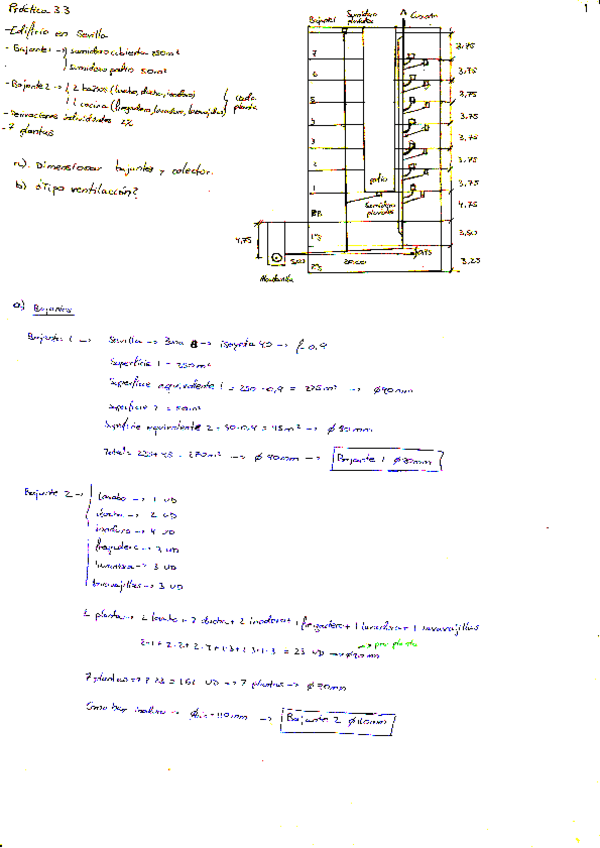 Práctica 3.3
1
-Edificio en Sevilla
-Bajante1 -> sumidero cubierta 250m²
sumidero patio 50m²
-Bajante2 -> 2 baños (lavabo, ducha, inodoro) cada
1 cocina (fregadero, lavadora, lavavajillas) planta
2%
-7 plantas
a). Dimensionar bajantes y colector.
b) ¿Tipo ventilación?
Bajante1 Sumidero A Cocina
pluviales
7 3,75
6 3,75
5 3,75
4 3,75
3 3,75
2 3,75
1 patio 4,75
Sumidero
pluviales
3,50
4,75
5,00
3,25
a) Bajantes
Bajante 1 -> Sevilla -> Zona B -> isoyeta 40 -> f=0,9
Superficie 1 = 250m²
Superficie equivalente 1 = 250 · 0,9 = 225m² -> ϕ90mm
Superficie 2 = 50m²
Superficie equivalente 2 = 50·0,9 = 45m² -> ϕ
Total = 225+45 = 270m² -> ϕ 90mm -> Bajante 1 ϕ90mm
Bajante 2 -> lavabo -> 1 UD
ducha -> 2 UD
inodoro -> 4 UD
fregadero -> 3 UD
lavadora -> 3 UD
lavavajillas -> 3 UD
1 planta -> 2 lavabo + 2 ducha + 2 inodoro + 1 fregadero + 1 lavadora + 1 lavavajillas
2·1 + 2·2 + 2·4 + 1·3 + 1·3 + 1·3 = 23 UD -> por planta
7 plantas -> 7·23 = 161 UD -> 7 plantas -> ϕ90mm
Como hay inodoro -> ϕmin=110mm -> Bajante 2 ϕ110mm